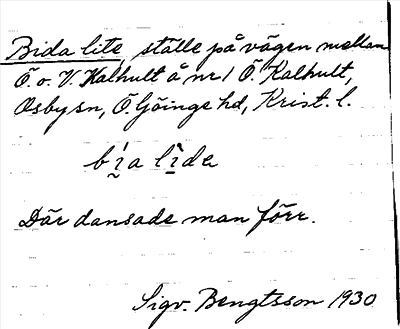 Bida lite, ställe på vägen mellan
Ö. o. V. Kalhult å nr 1 Ö. Kalhult,
Osby sn, Ö. Göinge hd, Krist. l.
bḭ́a lḭ̀de
Där dansade man förr.
Sigv. Bengtsson 1930